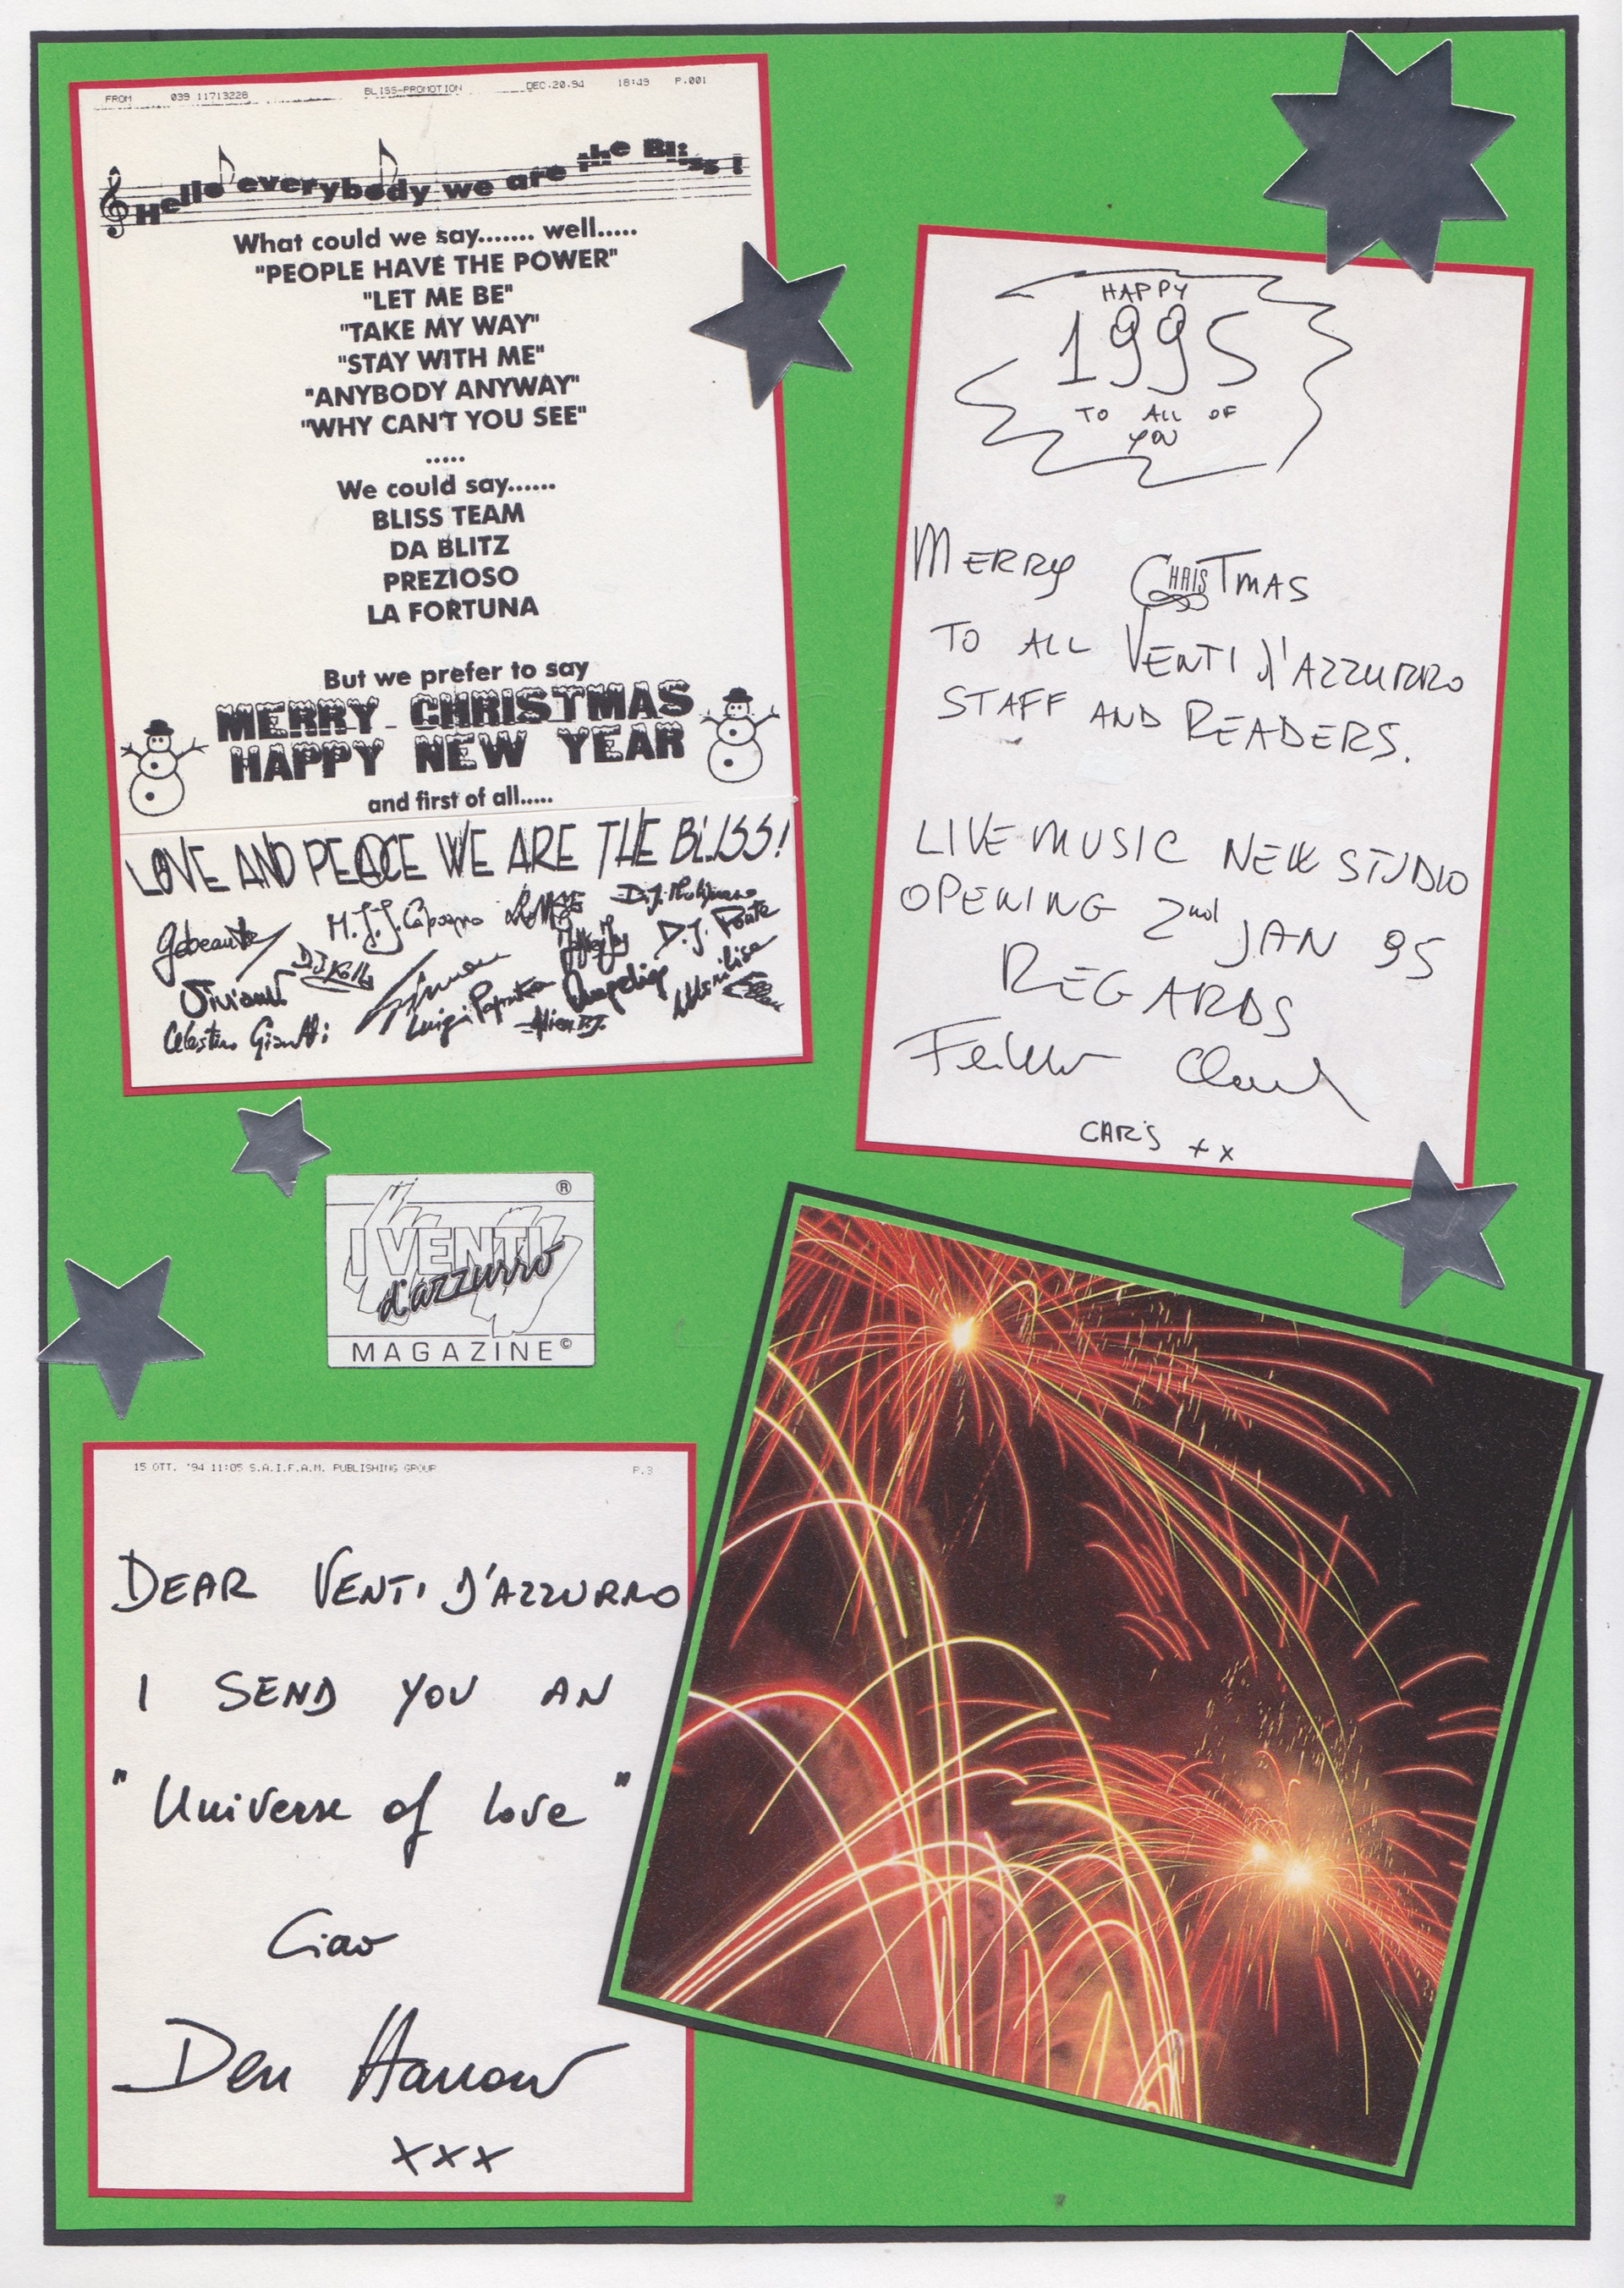 FROM 039 11713228 BLISS-PROMOTION DEC.20.94 18:49 P.001
Hello everybody we are the Bliss !
What could we say....... well.....
"PEOPLE HAVE THE POWER"
"LET ME BE"
"TAKE MY WAY"
"STAY WITH ME"
"ANYBODY ANYWAY"
"WHY CAN'T YOU SEE"
.....
We could say......
BLISS TEAM
DA BLITZ
PREZIOSO
LA FORTUNA
But we prefer to say
MERRY CHRISTMAS
HAPPY NEW YEAR
and first of all.....
LOVE AND PEACE WE ARE THE BLISS!
M.J.J.
D.J.
D.J.
Luigi
Celestino
HAPPY
1995
TO ALL OF
YOU
MERRY CHRISTMAS
TO ALL VENTI D'AZZURRO
STAFF AND READERS.
LIVE MUSIC NEW STUDIO
OPENING 2nd JAN 95
REGARDS
I VENTI ®
d'azzurro
MAGAZINE©
15 OTT. '94 11:05 S.A.I.F.A.M. PUBLISHING GROUP P.3
DEAR VENTI D'AZZURRO
I SEND YOU AN
"Universe of love"
Ciao
Den Harrow
xxx